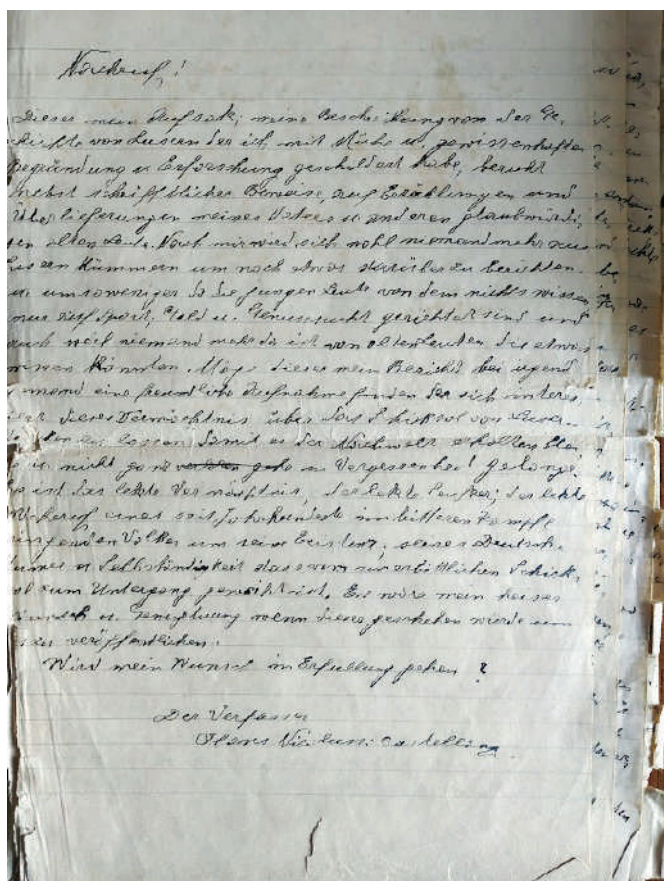 Nachruf!
Dieser mein Aufsatz, meine Beschreibung von der Ge,
chichte von Lusern der ich mit Mühe u. gewissenhafter
Begründung u Erforschung geschildert habe, beruht
nebst schriftlicher Beweise, auf Erzählungen und
Überlieferungen meines Vaters u anderen glaubwürdi,
en alten Leute. Nach mir wird sich wohl niemand mehr aus
usern kümmern um noch etwas darüber zu berichten.
u umsoweniger da die jungen Leute von dem nichts wissen
nur auf Sport, Geld u. Genusssucht gerichtet sind und
auch weil niemand mehr da ist von alten Leuten die etwas
wissen könnten. Möge dieser mein Bericht bei irgend
jemand eine freundliche Aufnahme finden der sich interes
iert dieses Vermächtnis über das Schicksal von Lusern
lassen damit es der Nachwelt erhalten blei,
u nicht ganz verloren gehe in Vergessenheit gelange.
s ist das letzte Vermächtnis, der letzte Seufzer, der letzte
eines seit Jahrhunderte im bitteren Kampfe
ringenden Volkes um seine Existenz, seines Deutsch,
tumes u Selbständigkeit das vom unerbittlichen Schick,
al zum Untergang geweiht ist. Es wäre mein heises
Wunsch u. Genugtuung wenn dieses geschehen würde um
es zu veröffentlichen.
Wird mein Wunsch in Erfüllung gehen?
Der Verfasser
Hans Nicolussi Castellan